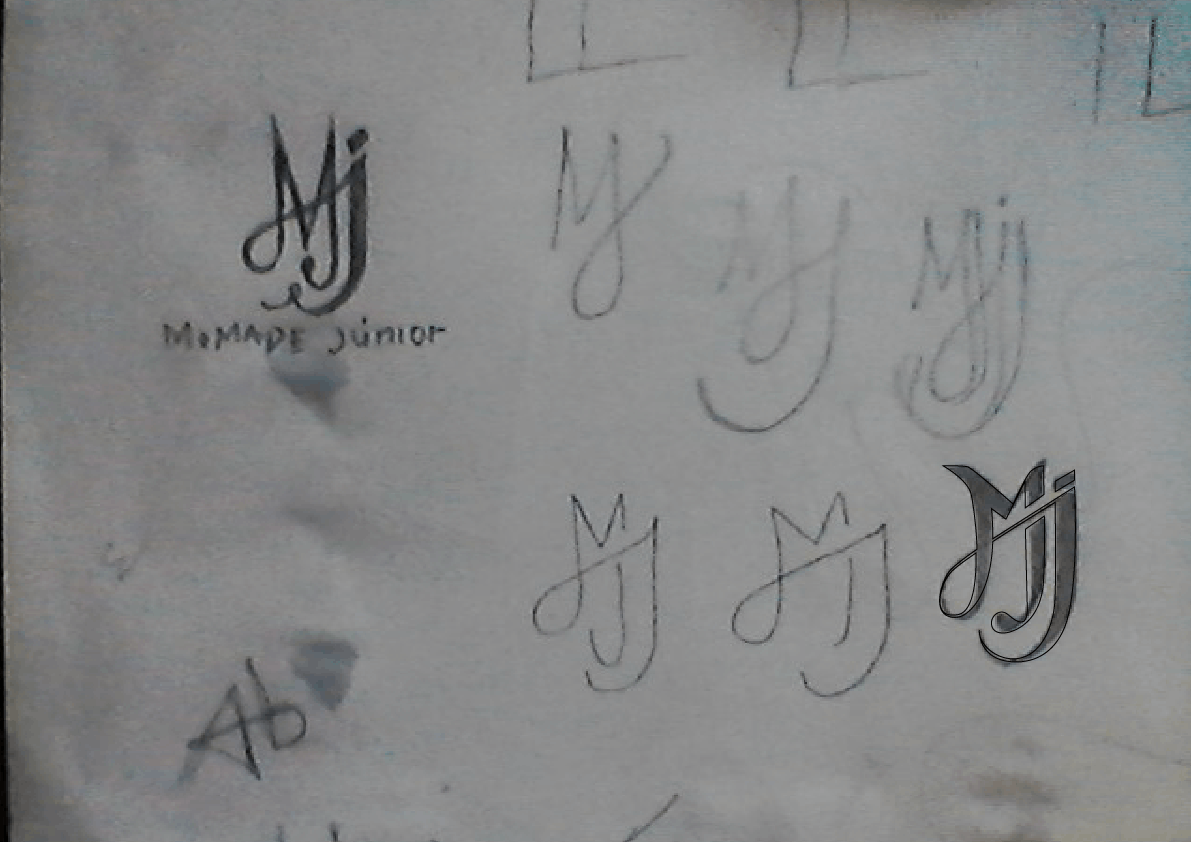 Mj
MOMADE Júnior
M
Mj
Mj
Mj
Mj
Mj
Ab